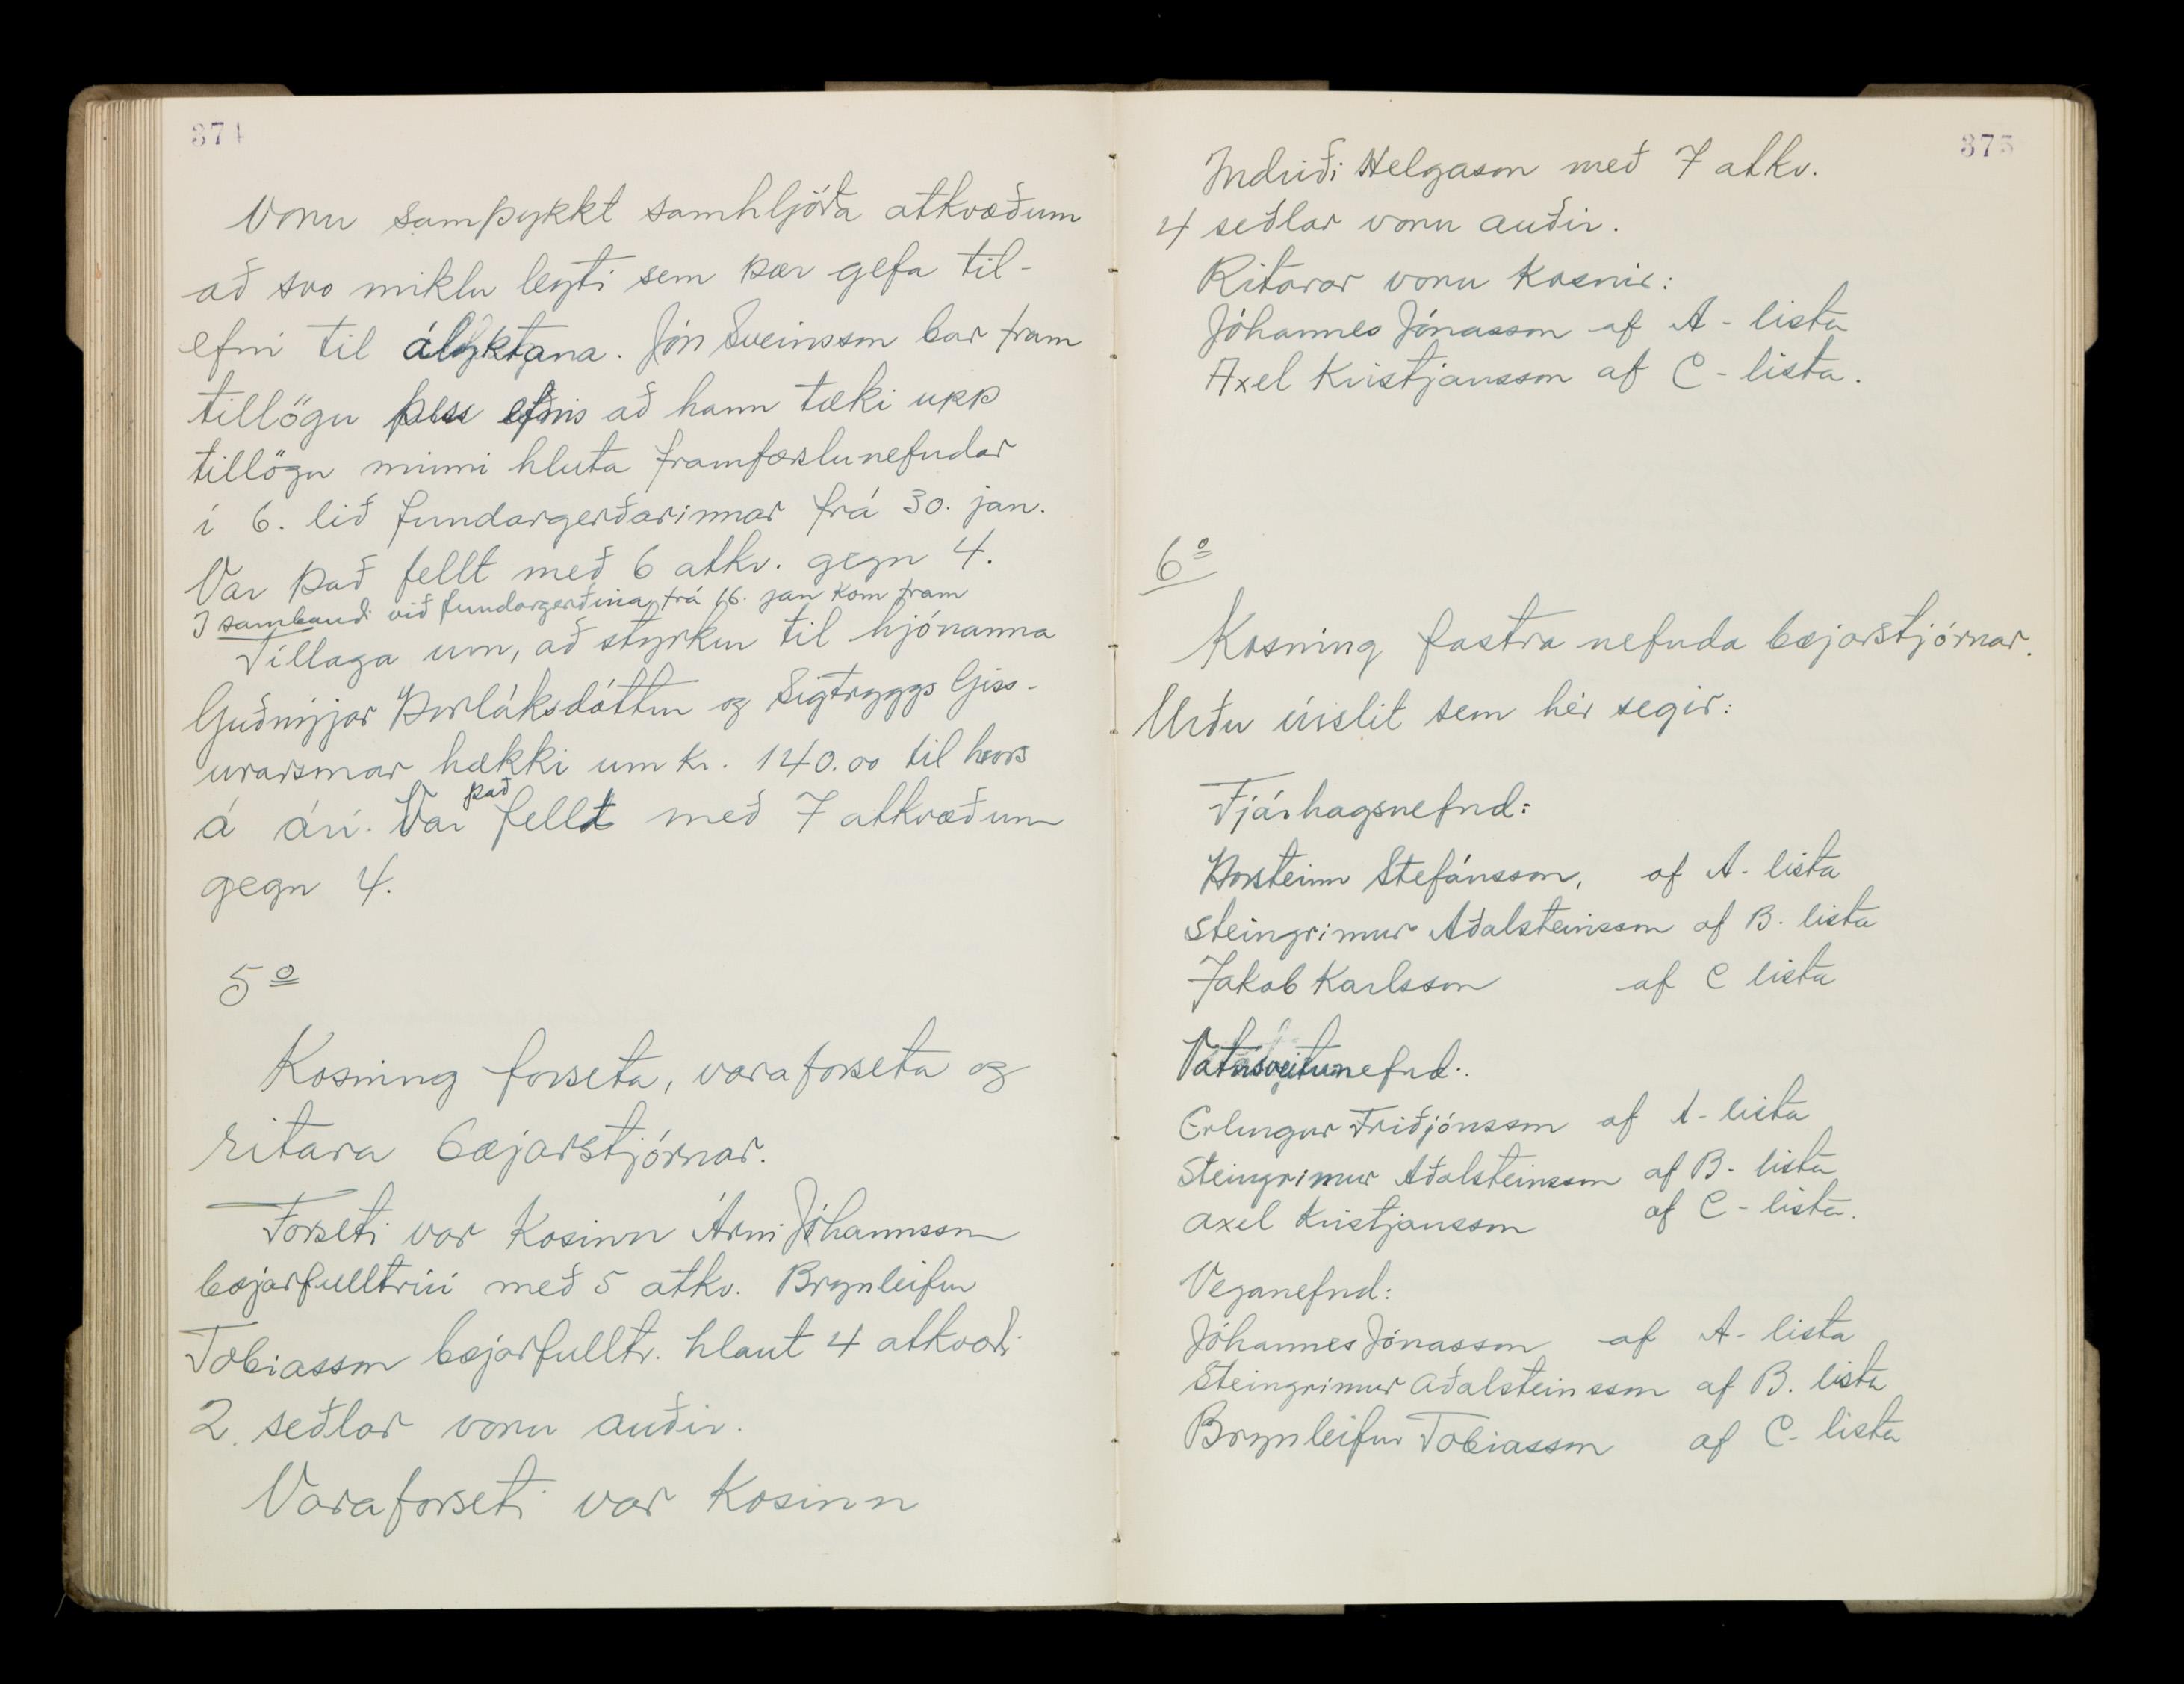 374
Voru samþykkt samhljóða atkvæðum
að svo miklu leyti sem þær gefa til-
efni til ályktana. Jón Sveinsson bar fram
tillögu þess efnis að hann tæki upp
tillögu minni hluta framfærslunefndar
í 6. lið fundargerðarinnar frá 30. jan.
Var það fellt með 6 atkv. gegn 4.
Í sambandi við fundargerðina frá 16. jan kom fram
Tillaga um, að styrkur til hjónanna
Guðnýjar Þorláksdóttur og Sigtryggs Giss-
urarsonar hækki um kr. 140.00 til hvors
á ári. Var það fellt með 7 atkvæðum
gegn 4.
5º
Kosning forseta, varaforseta og
ritara bæjarstjórnar.
Forseti var kosinn Árni Jóhannsson
bæjarfulltrúi með 5 atkv. Brynleifur
Tobiasson bæjarfulltr. hlaut 4 atkvæði
2. seðlar voru auðir.
Varaforseti var kosinn
375
Indriði Helgason með 7 atkv.
4 seðlar voru auðir.
Ritarar voru kosnir:
Jóhannes Jónasson af A - lista
Axel Kristjansson af C - lista.
6º
Kosning fastra nefnda bæjarstjórnar.
Urðu úrslit sem hér segir:
Fjárhagsnefnd:
Þorsteinn Stefánsson, af A - lista
Steingrimur Aðalsteinsson af B. lista
Jakob Karlsson af C lista
Vatnsveitunefnd:
Erlingur Friðjónsson af A - lista
Steingrimur Aðalsteinsson af B - lista
Axel Kristjansson af C - lista.
Veganefnd:
Jóhannes Jónasson af A - lista
Steingrimur Aðalsteinsson af B. lista
Brynleifur Tobiasson af C - lista